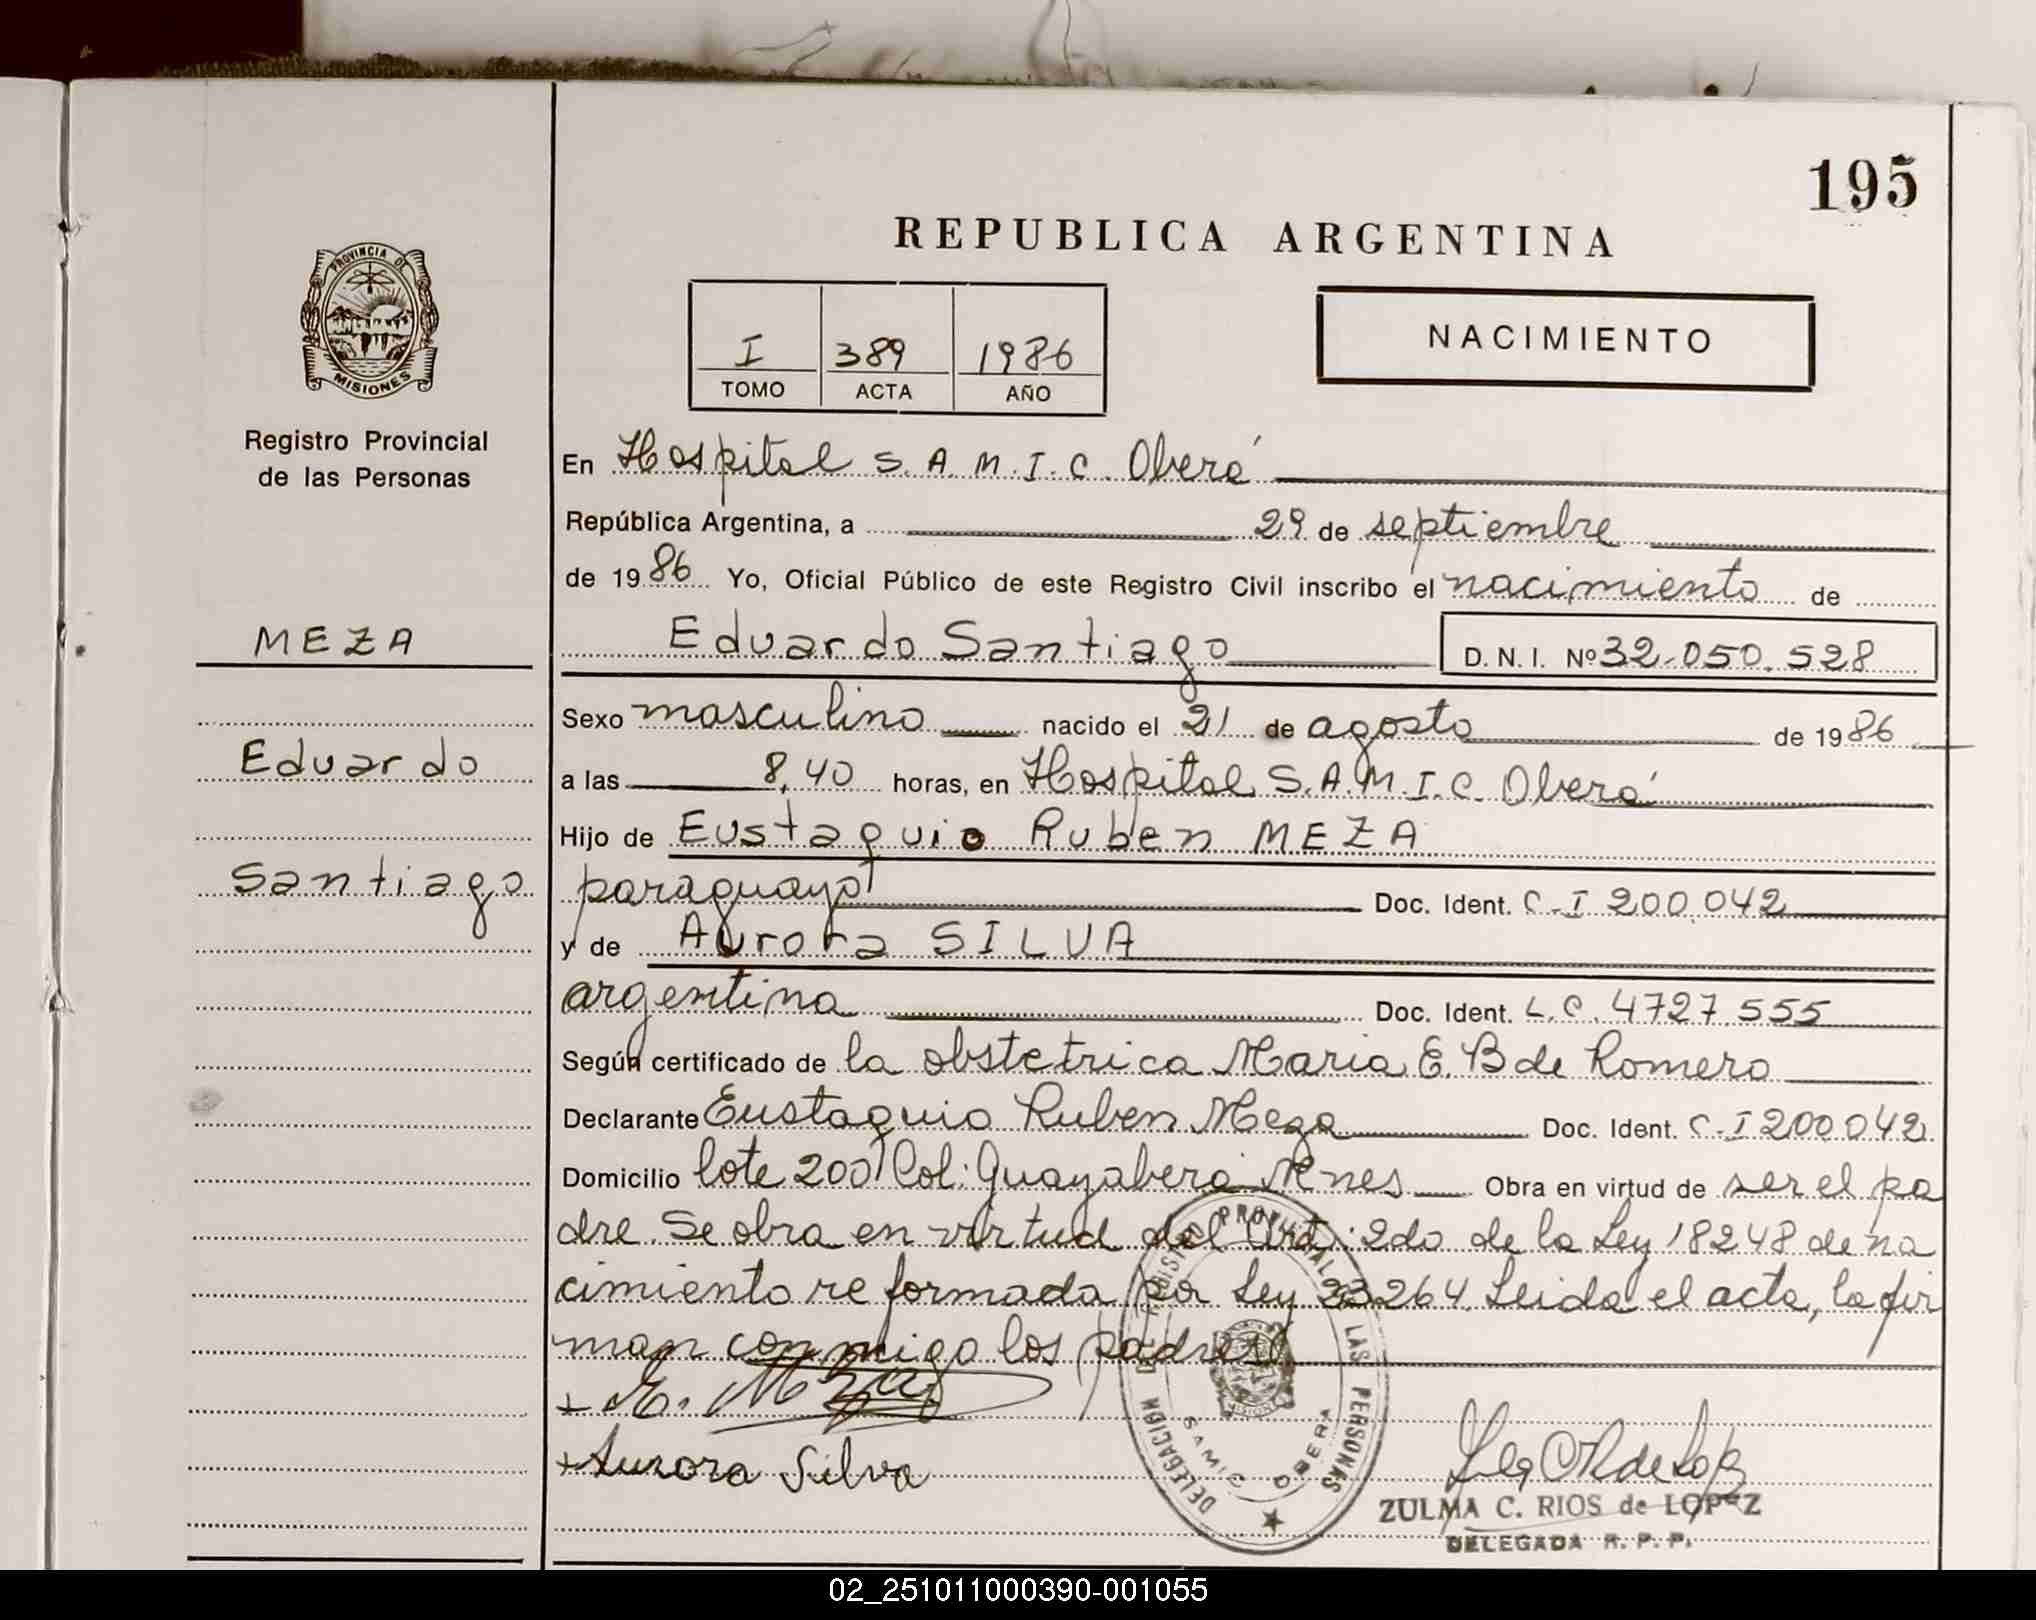 195
REPUBLICA ARGENTINA
PROVINCIA DE
MISIONES
I 389 1986
TOMO ACTA AÑO
NACIMIENTO
Registro Provincial
de las Personas
En Hospital S.A.M.I.C. Oberá
República Argentina, a 29 de septiembre
de 1986 Yo, Oficial Público de este Registro Civil inscribo el nacimiento de
MEZA
Eduardo Santiago D.N.I. Nº 32.050.528
Sexo masculino nacido el 21 de agosto de 1986
Eduardo
a las 8,40 horas, en Hospital S.A.M.I.C. Oberá
Hijo de Eustaquio Ruben MEZA
Santiago
paraguayo Doc. Ident. C.I 200.042
y de Aurora SILVA
argentina Doc. Ident. L.C. 4727.555
Según certificado de la obstetrica Maria E. B de Romero
Declarante Eustaquio Ruben Meza Doc. Ident. C.I 200.042
Domicilio lote 200 Col: Guayabera Mnes Obra en virtud de ser el pa
dre. Se obra en virtud del Art: 2do de la Ley 18248 de na
cimiento reformada por Ley 23264. Leida el acta, la fir
man conmigo los padres
+ E. Meza
+ Aurora Silva
DELEGACION DEL REGISTRO PROVINCIAL DE LAS PERSONAS
SAMIC OBERA
MISIONES
ZULMA C. RIOS de LOPEZ
DELEGADA R. P. P.
02_251011000390-001055